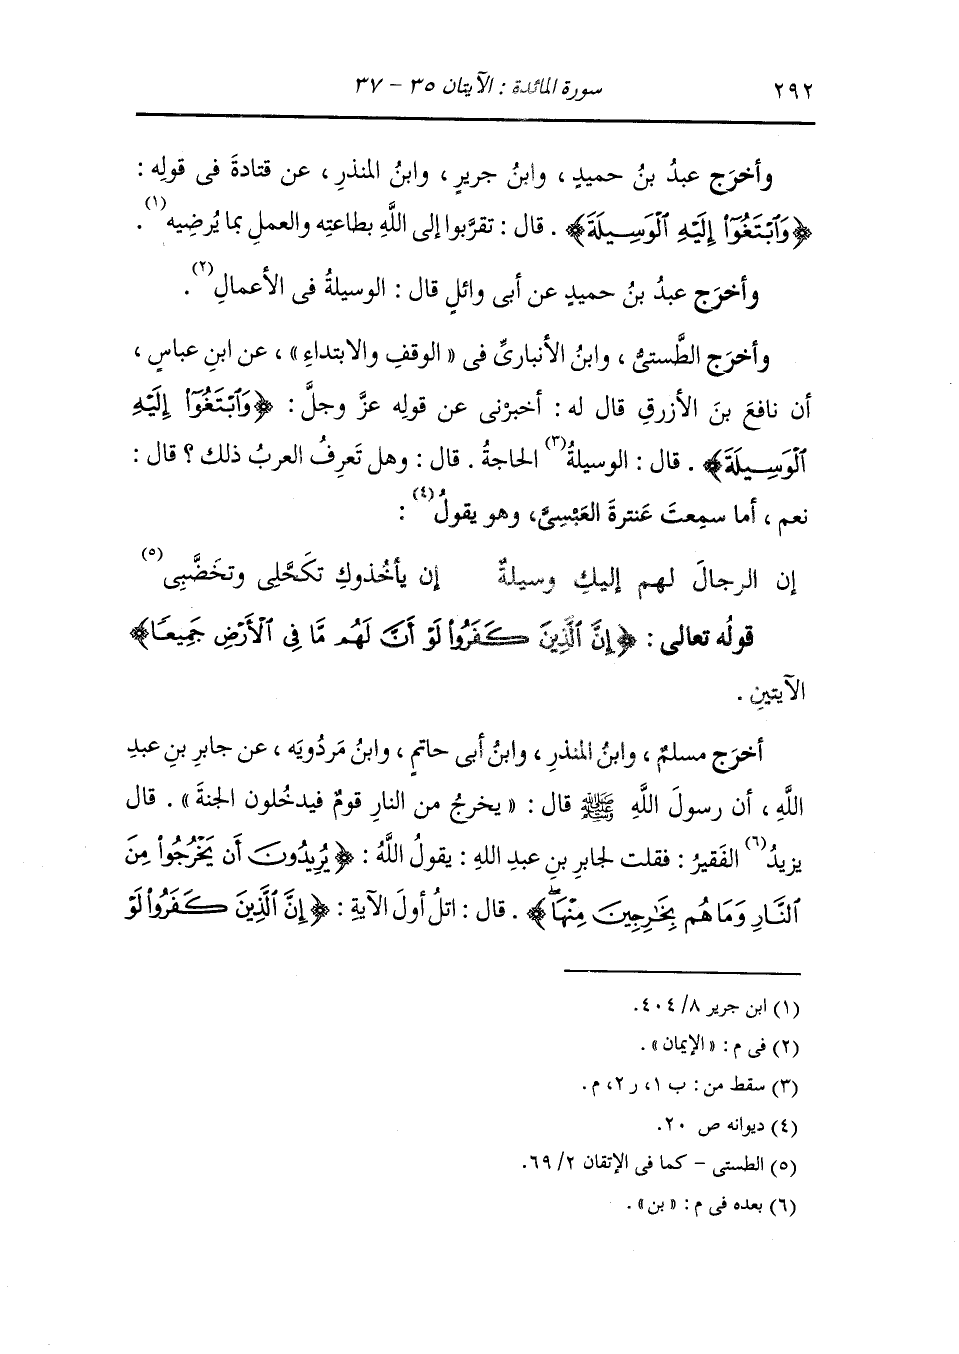 ٢٩٢ سورة المائدة : الآيتان ٣٥ - ٣٧
وأخرَج عبدُ بنُ حميدٍ ، وابنُ جريرٍ ، وابنُ المنذرِ ، عن قتادةَ فى قولِه :
﴿وَٱبْتَغُوٓا۟ إِلَيْهِ ٱلْوَسِيلَةَ﴾ . قال : تقرَّبوا إلى اللَّهِ بطاعتِه والعملِ بما يُرضِيه(١) .
وأخرَج عبدُ بنُ حميدٍ عن أبى وائلٍ قال : الوسيلةُ فى الأعمالِ(٢) .
وأخرَج الطَّستىُّ ، وابنُ الأنبارىِّ فى « الوقفِ والابتداءِ » ، عن ابنِ عباسٍ ،
أن نافعَ بنَ الأزرقِ قال له : أخبرْنى عن قولِه عزَّ وجلَّ : ﴿وَٱبْتَغُوٓا۟ إِلَيْهِ
ٱلْوَسِيلَةَ﴾ . قال : الوسيلةُ(٣) الحاجةُ . قال : وهل تَعرِفُ العربُ ذلك ؟ قال :
نعم ، أما سمِعتَ عَنترةَ العَبْسِىَّ، وهو يقولُ(٤) :
إن الرجالَ لهم إليكِ وسيلةٌ إن يأخُذوكِ تكَحَّلِى وتخَضَّبِى(٥)
قولُه تعالى : ﴿إِنَّ ٱلَّذِينَ كَفَرُوا۟ لَوْ أَنَّ لَهُم مَّا فِى ٱلْأَرْضِ جَمِيعًا﴾
الآيتينِ .
أخرَج مسلمٌ ، وابنُ المنذرِ ، وابنُ أبى حاتمٍ ، وابنُ مَردُويَه ، عن جابرِ بنِ عبدِ
اللَّهِ ، أن رسولَ اللَّهِ ﷺ قال : « يخرجُ من النارِ قومٌ فيدخُلون الجنةَ » . قال
يزيدُ(٦) الفَقيرُ : فقلت لجابرِ بنِ عبدِ اللهِ : يقولُ اللَّهُ : ﴿يُرِيدُونَ أَن يَخْرُجُوا۟ مِنَ
ٱلنَّارِ وَمَا هُم بِخَٰرِجِينَ مِنْهَاۖ﴾ . قال : اتلُ أولَ الآيةِ : ﴿إِنَّ ٱلَّذِينَ كَفَرُوا۟ لَوْ
(١) ابن جرير ٨/ ٤٠٤.
(٢) فى م : « الإيمان » .
(٣) سقط من : ب ١، ر ٢، م .
(٤) ديوانه ص ٢٠.
(٥) الطستى - كما فى الإتقان ٢/ ٦٩.
(٦) بعده فى م : « بن » .